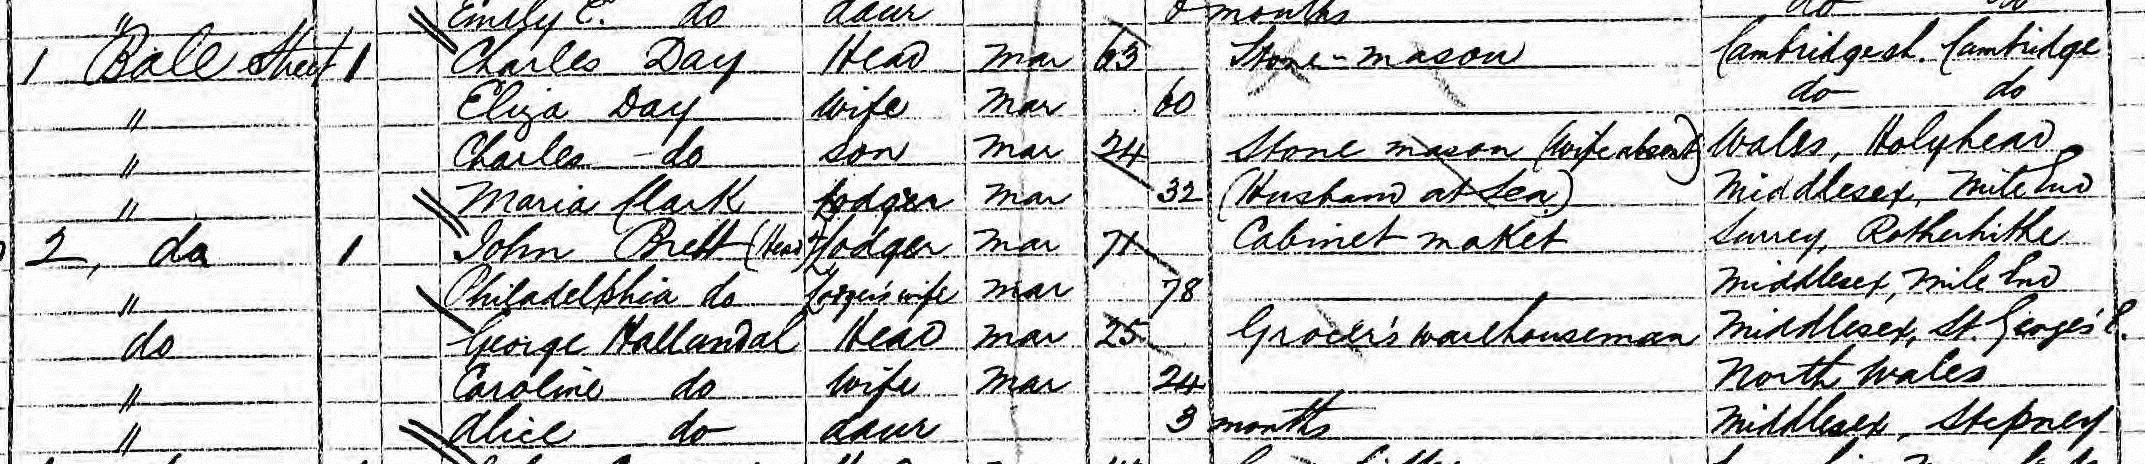 " Emily E. do daur months do do
1 Bale Street 1 Charles Day Head Mar 63 Stone-mason Cambridgesh. Cambridge
" Eliza Day Wife Mar 60 do do
" Charles do Son Mar 24 Stone mason (Wife absent) Wales, Holyhead
" Maria Clark Lodger Mar 32 (Husband at Sea) Middlesex, Mile End
2, do 1 John Brett (Head) Lodger Mar 71 Cabinet maker Surrey, Rotherhithe
" Philadelphia do Lodger's wife Mar 78 Middlesex, Mile End
do George Hallundal Head Mar 25 Grocer's warehouseman Middlesex, St. George's E.
" Caroline do Wife Mar 24 North Wales
" Alice do daur 3 months Middlesex, Stepney